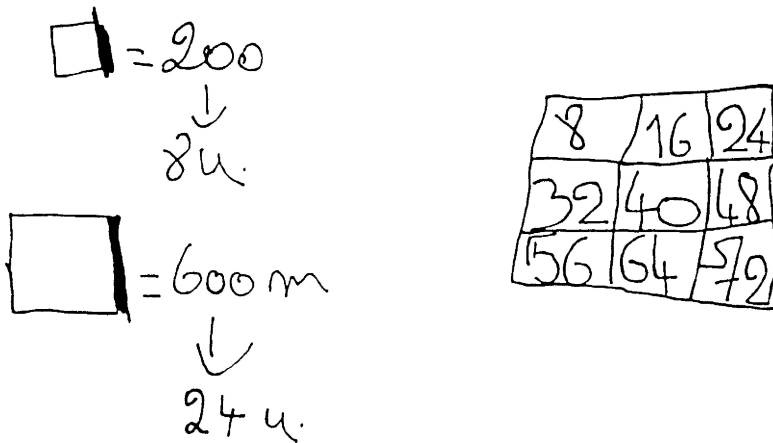 = 200
↓
8u.
= 600 m
↓
24 u.
8 16 24
32 40 48
56 64 72